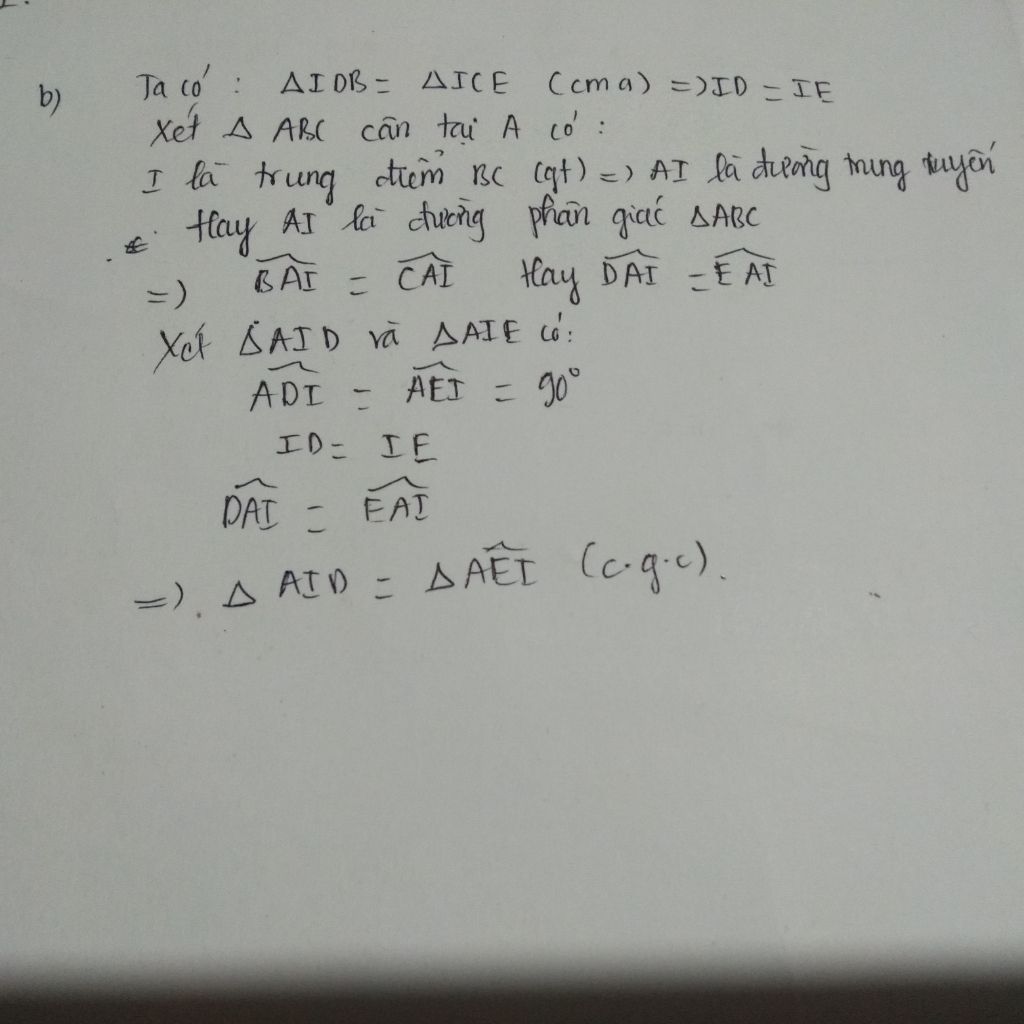 b) Ta có : ΔIDB = ΔICE (cma) => ID = IE
Xét Δ ABC cân tại A có :
I là trung điểm BC (gt) => AI là đường trung tuyến
Hay AI là đường phân giác ΔABC
=) BAI = CAI Hay DAI = EAI
Xét ΔAID và ΔAIE có:
ADI = AEI = 90°
ID = IE
DAI = EAI
=) Δ AID = ΔAEI (c.g.c).